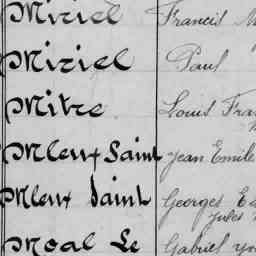 Miriel Francis M
Miriel Paul
Mitre Louis Fra
Mleux Saint Jean Emile
Mleux Saint Georges E
Jules
Moal Le Gabriel